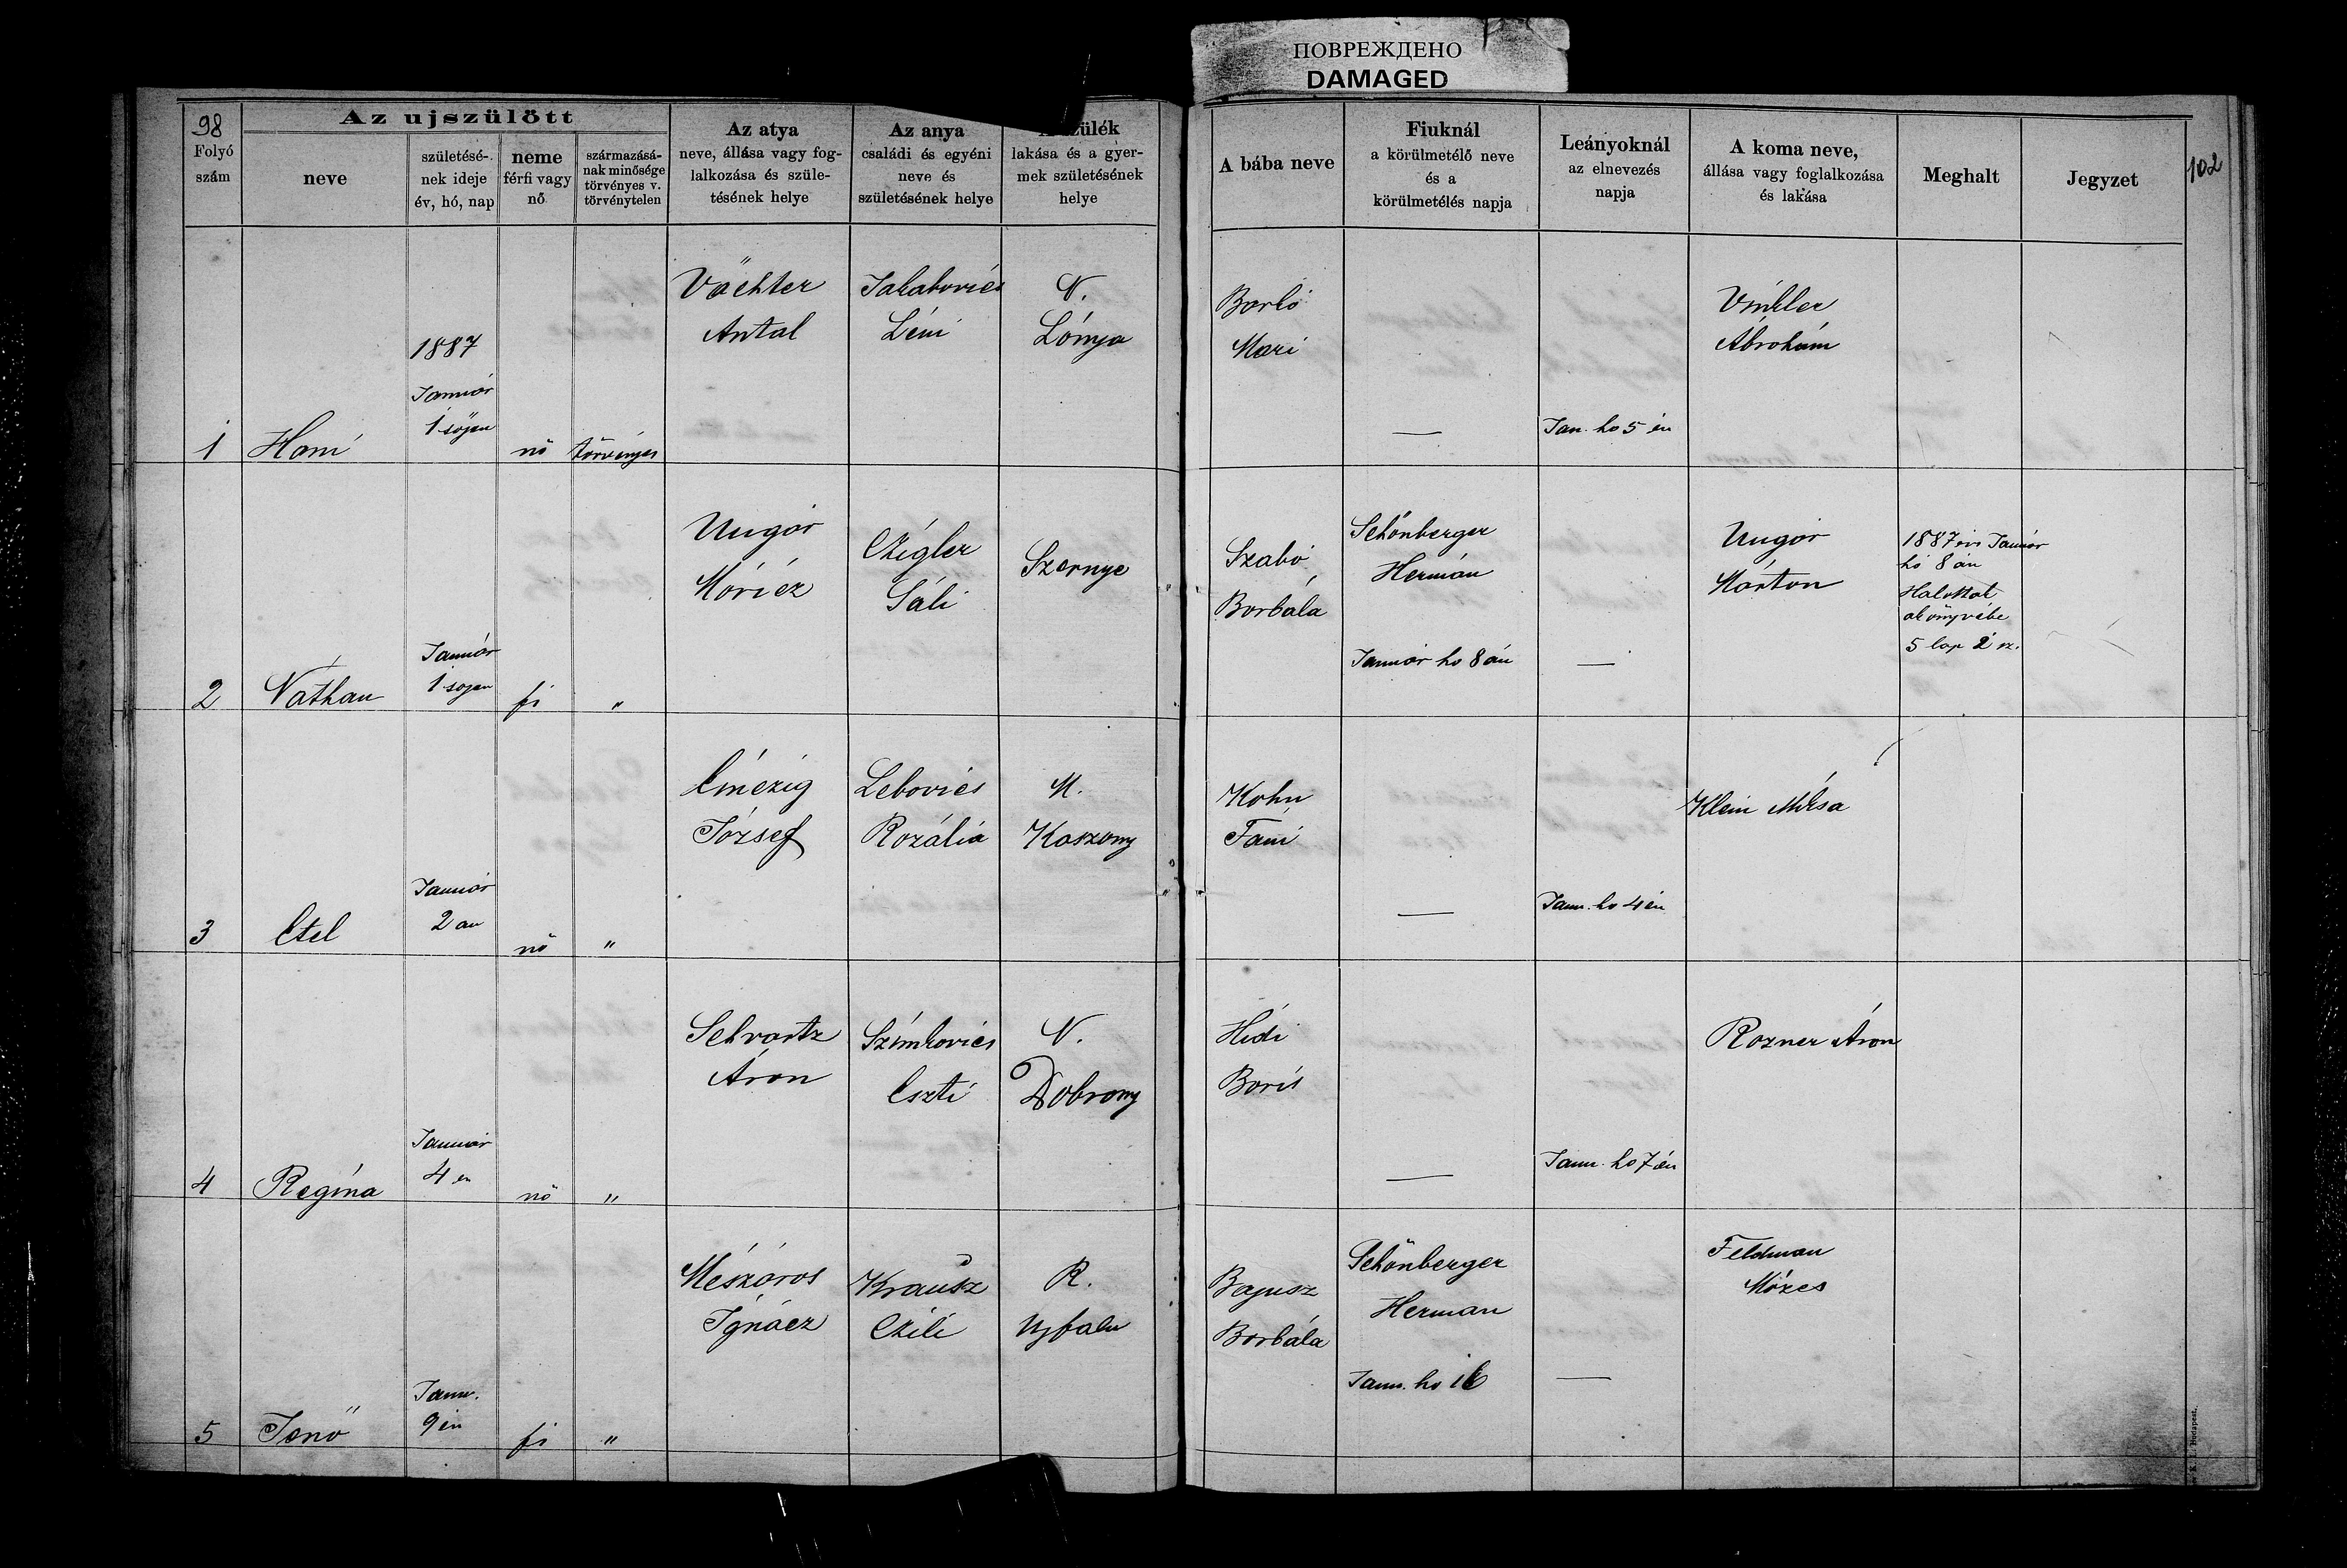 ПОВРЕЖДЕНО
DAMAGED
98
Folyó
szám
Az ujszülött
neve
születésé-
nek ideje
év, hó, nap
neme
férfi vagy
nő
származásá-
nak minősége
törvényes v.
törvénytelen
Az atya
neve, állása vagy fog-
lalkozása és szüle-
tésének helye
Az anya
családi és egyéni
neve és
születésének helye
szülék
lakása és a gyer-
mek születésének
helye
A bába neve
Fiuknál
a körülmetélő neve
és a
körülmetélés napja
Leányoknál
az elnevezés
napja
A koma neve,
állása vagy foglalkozása
és lakása
Meghalt
Jegyzet
102
1
Hani
1887
Január
1 söjen
nő
törvényes
Vächter
Antal
Jakabovics
Léni
N.
Lónya
Mari
—
Jan. ho 5 én
Vinkler
Ábrohám
2
Náthan
Január
1 sojen
fi
"
Ungár
Móricz
Czigler
Sáli
Szernye
Szabó
Borbála
Schönberger
Herman
Január ho 8 án
—
Ungár
Márton
1887 évi Január
hó 8 án
Halottak
akönyvébe
5 lap 2 sz.
3
Etel
Január
2 an
nő
"
József
Lebovics
Rozália
M.
Kaszony
Kohn
Fani
—
Jann. ho 4 én
Klein
4
Regina
Január
4 en
nő
"
Schvartz
Áron
Szimkovics
Eszti
N.
Dobrony
Hidi
Boris
—
Jann. ho 7 én
Rozner Áron
5
Jenő
Jann.
9 én
fi
"
Mészáros
Ignácz
Krausz
Czili
R.
Ujfalu
Bajusz
Borbála
Schönberger
Herman
Jann. ho 16
—
Feldman
Mózes
Budapest.